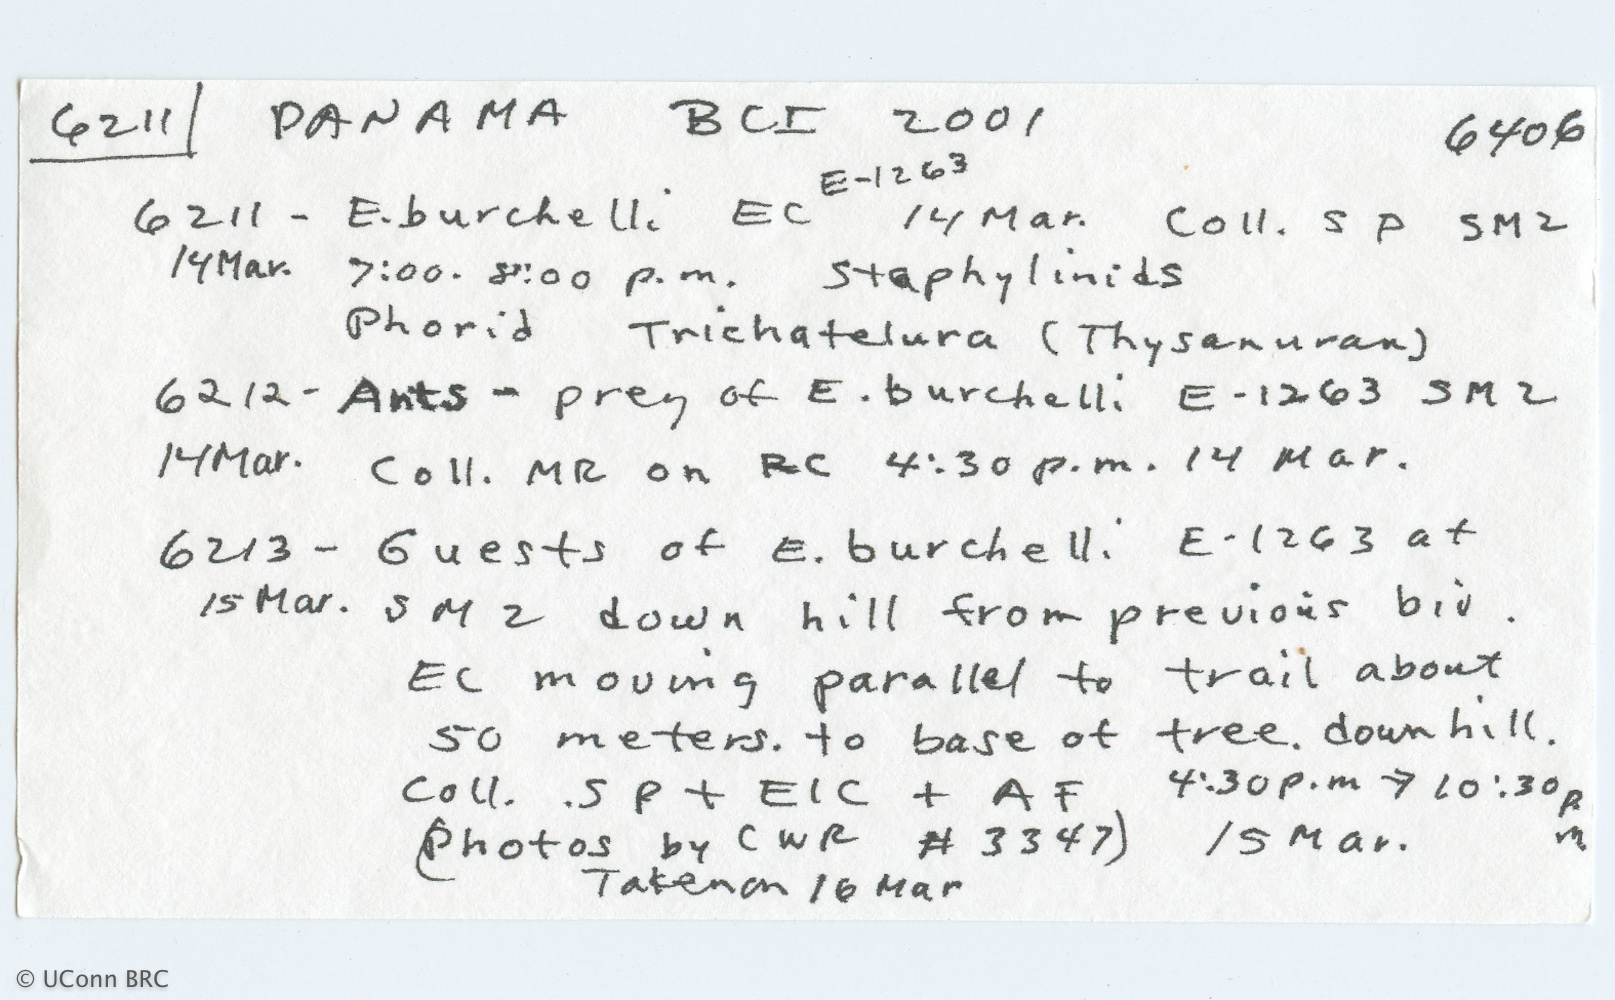 6211 PANAMA BCI 2001 6406
6211 - E. burchelli EC E-1263 14 Mar. Coll. SP SM2
14 Mar. 7:00-8:00 p.m. Staphylinids
Phorid Trichatelura (Thysanuran)
6212 - Ants - prey of E. burchelli E-1263 SM2
14 Mar. Coll. MR on RC 4:30 p.m. 14 Mar.
6213 - Guests of E. burchelli E-1263 at
15 Mar. SM2 down hill from previous biv.
EC moving parallel to trail about
50 meters. to base of tree. down hill.
Coll. SP + EIC + AF 4:30 p.m → 10:30 pm
(Photos by CWR # 3347) 15 Mar.
Taken on 16 Mar
© UConn BRC